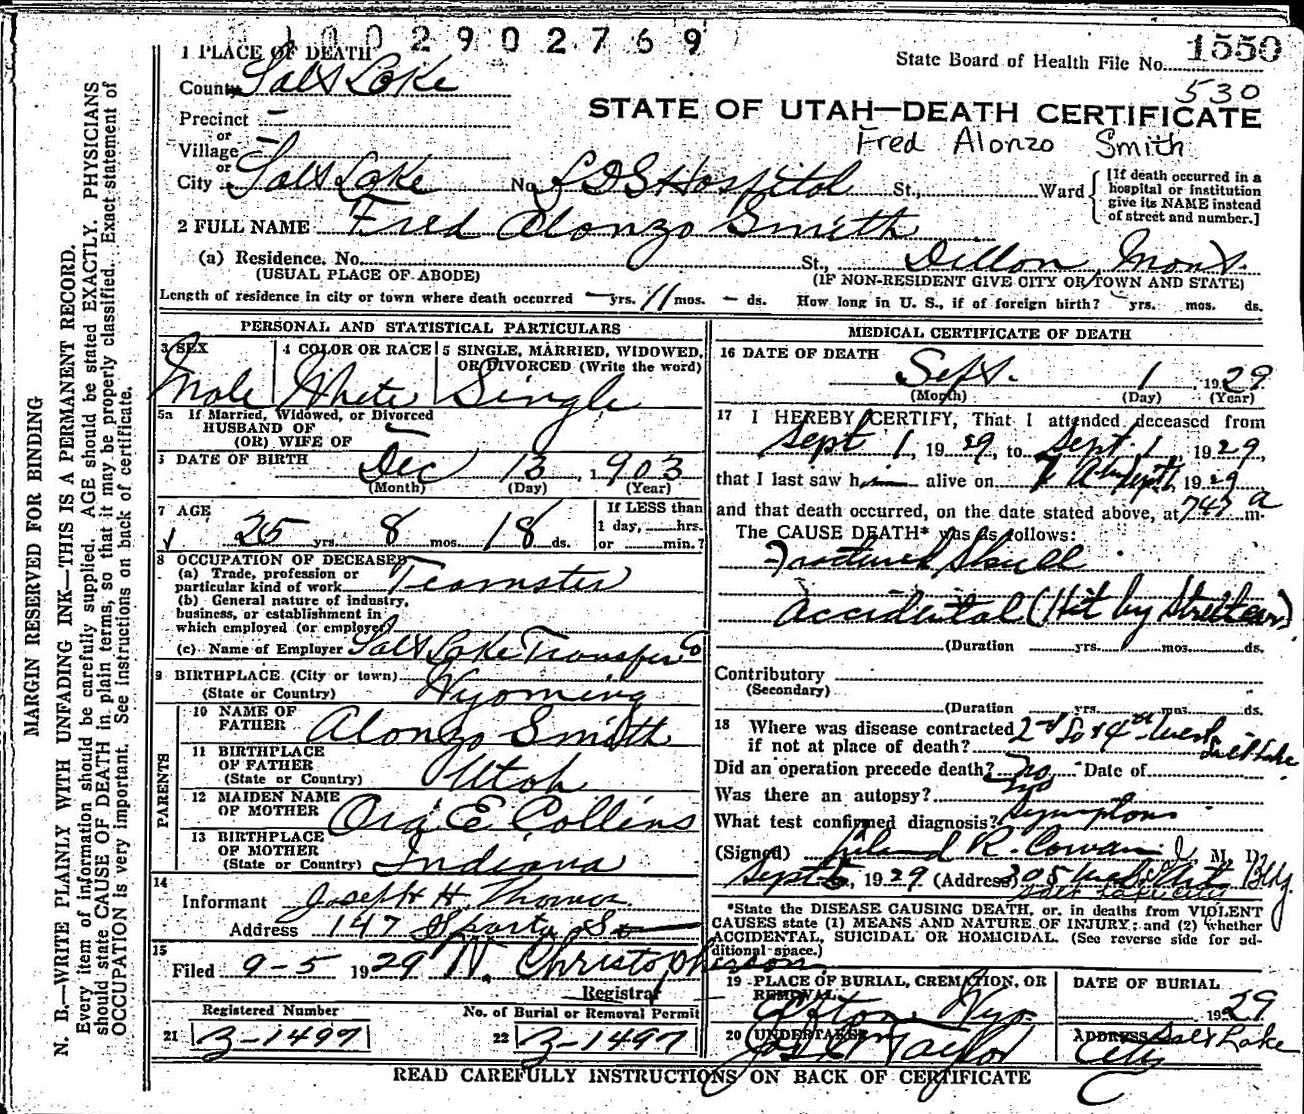 1 0 0 2 9 0 2 7 6 9
1 PLACE OF DEATH
State Board of Health File No. 1550
County Salt Lake
530
STATE OF UTAH—DEATH CERTIFICATE
Precinct —
Fred Alonzo Smith
or
Village —
or
City Salt Lake No. LDS Hospital St., Ward
[If death occurred in a hospital or institution give its NAME instead of street and number.]
2 FULL NAME Fred Alonzo Smith
(a) Residence. No. St., Dillon, Mont.
(USUAL PLACE OF ABODE) (IF NON-RESIDENT GIVE CITY OR TOWN AND STATE)
Length of residence in city or town where death occurred — yrs. 11 mos. — ds. How long in U. S., if of foreign birth? yrs. mos. ds.
PERSONAL AND STATISTICAL PARTICULARS
3 SEX
Male
4 COLOR OR RACE
White
5 SINGLE, MARRIED, WIDOWED, OR DIVORCED (Write the word)
Single
5a If Married, Widowed, or Divorced
HUSBAND OF
(OR) WIFE OF —
DATE OF BIRTH Dec 13 1903
(Month) (Day) (Year)
7 AGE
25 yrs. 8 mos. 18 ds.
If LESS than
1 day, hrs.
or min.?
8 OCCUPATION OF DECEASED
(a) Trade, profession or
particular kind of work Teamster
(b) General nature of industry,
business, or establishment in
which employed (or employer)
(c) Name of Employer Salt Lake Transfer Co
9 BIRTHPLACE (City or town)
(State or Country) Wyoming
PARENTS
10 NAME OF
FATHER Alonzo Smith
11 BIRTHPLACE
OF FATHER
(State or Country) Utah
12 MAIDEN NAME
OF MOTHER Ora E Collins
13 BIRTHPLACE
OF MOTHER
(State or Country) Indiana
14
Informant Joseph H. Thomas
Address 147 Sparta St
15
Filed 9-5 1929 N. Christopherson
Registrar
Registered Number
21 3-1497
No. of Burial or Removal Permit
22 3-1497
MEDICAL CERTIFICATE OF DEATH
16 DATE OF DEATH
Sept. 1, 1929
(Month) (Day) (Year)
17 I HEREBY CERTIFY, That I attended deceased from
Sept 1, 1929, to Sept. 1, 1929,
that I last saw him alive on 7 Am Sept 1, 1929
and that death occurred, on the date stated above, at 747 a m.
The CAUSE DEATH* was as follows:
Fractured Skull
Accidental (Hit by Streetcar)
(Duration yrs. mos. ds.
Contributory
(Secondary)
(Duration yrs. mos. ds.
18 Where was disease contracted
if not at place of death? 2nd So & 4th West Salt Lake
Did an operation precede death? no Date of
Was there an autopsy? no
What test confirmed diagnosis? Symptoms
(Signed) Leland R. Cowan, M. D.
Sept 1929 (Address) 305 Bldg.
Salt Lake City
*State the DISEASE CAUSING DEATH, or, in deaths from VIOLENT
CAUSES state (1) MEANS AND NATURE OF INJURY; and (2) whether
ACCIDENTAL, SUICIDAL OR HOMICIDAL. (See reverse side for ad-
ditional space.)
19 PLACE OF BURIAL, CREMATION, OR
REMOVAL
Afton, Wyo.
DATE OF BURIAL
1929
20 UNDERTAKER
Taylor
ADDRESS Salt Lake
City
READ CAREFULLY INSTRUCTIONS ON BACK OF CERTIFICATE
MARGIN RESERVED FOR BINDING
N. B.—WRITE PLAINLY WITH UNFADING INK—THIS IS A PERMANENT RECORD.
Every item of information should be carefully supplied. AGE should be stated EXACTLY. PHYSICIANS
should state CAUSE OF DEATH in plain terms, so that it may be properly classified. Exact statement of
OCCUPATION is very important. See instructions on back of certificate.